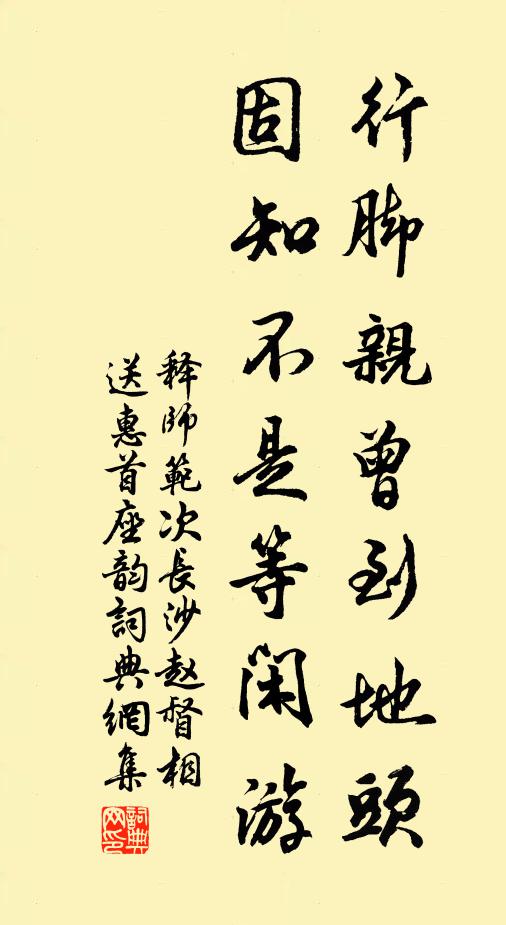 行脚親曾到地頭
固知不是等閑游
释師範次長沙赵督相
送惠首座韵詞典網集
詞典网印